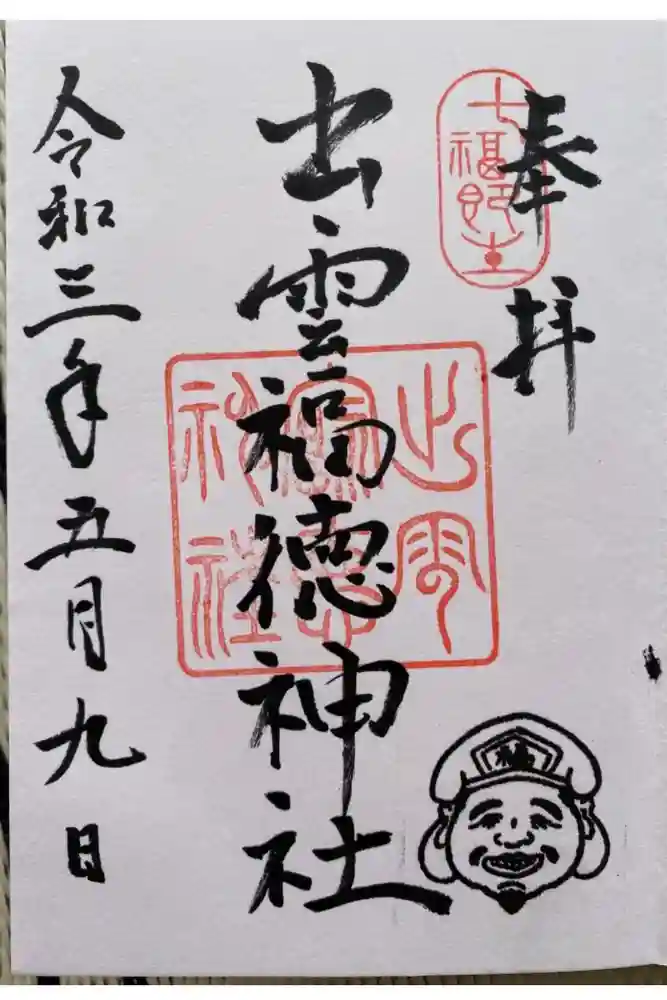 奉拝
七福即生
出雲福徳神社
出雲
福徳
神社
令和三年五月九日
福